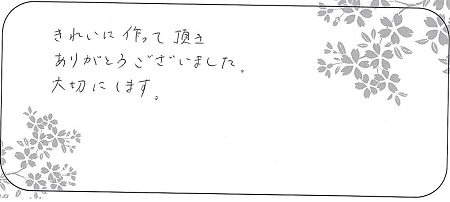 きれいに作って頂き
ありがとうございました。
大切にします。